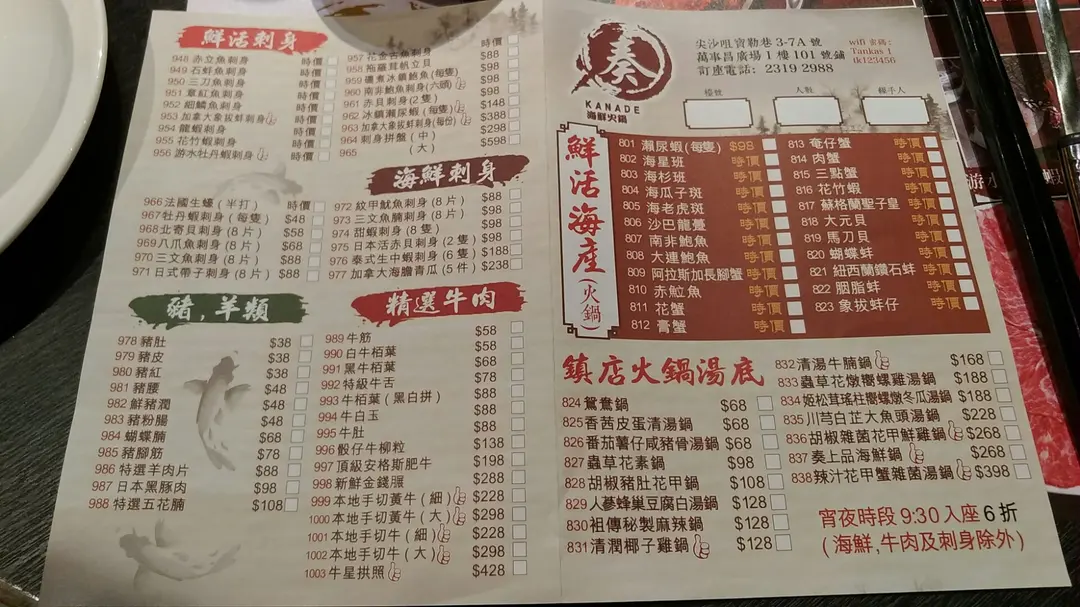 鮮活刺身
948 赤立魚刺身 時價
949 石鮮魚刺身 時價
950 三刀魚刺身 時價
951 章紅魚刺身 時價
952 細鱗魚刺身 時價
953 加拿大象拔蚌刺身 時價
954 龍蝦刺身 時價
955 花竹蝦刺身 時價
956 游水牡丹蝦刺身 時價
957 花金古魚刺身 時價
958 拖羅茸帆立貝 $88
959 磯煮冰鎮鮑魚(每隻) $98
960 南非鮑魚刺身(六頭) $88
961 赤貝刺身(2隻) $98
962 冰鎮瀨尿蝦(每隻) $148
963 加拿大象拔蚌刺身(每份) $388
964 刺身拼盤(中) $298
965 (大) $598
海鮮刺身
966 法國生蠔(半打) 時價
967 牡丹蝦刺身(每隻) $48
968 北寄貝刺身(8片) $58
969 八爪魚刺身(8片) $68
970 三文魚刺身(8片) $88
971 日式帶子刺身(8片) $88
972 紋甲魷魚刺身(8片) $88
973 三文魚腩刺身(8片) $98
974 甜蝦刺身(8片) $98
975 日本活赤貝刺身(2隻) $98
976 泰式生中蝦刺身(6隻) $188
977 加拿大海膽青瓜(5件) $238
豬,羊類
978 豬肚 $38
979 豬皮 $38
980 豬紅 $38
981 豬腰 $48
982 鮮豬潤 $48
983 豬粉腸 $48
984 蝴蝶腩 $68
985 豬腳筋 $78
986 特選羊肉片 $88
987 日本黑豚肉 $98
988 特選五花腩 $108
精選牛肉
989 牛筋 $58
990 白牛栢葉 $58
991 黑牛栢葉 $68
992 特級牛舌 $78
993 牛栢葉(黑白拼) $88
994 牛白玉 $88
995 牛肚 $88
996 骰仔牛柳粒 $138
997 頂級安格斯肥牛 $198
998 新鮮金錢𦟌 $288
999 本地手切黃牛(細) $228
1000 本地手切黃牛(大) $298
1001 本地手切牛(細) $228
1002 本地手切牛(大) $298
1003 牛星拱照 $428
奏
KANADE
海鮮火鍋
尖沙咀寶勒巷 3-7A 號
萬事昌廣場 1 樓 101 號鋪
訂座電話: 2319 2988
wifi 密碼:
Tankas 1
tk123456
檯號
人數
經手人
鮮活海產(火鍋)
801 瀨尿蝦(每隻) $98
802 海星班 時價
803 海杉班 時價
804 海瓜子斑 時價
805 海老虎斑 時價
806 沙巴龍躉 時價
807 南非鮑魚 時價
808 大連鮑魚 時價
809 阿拉斯加長腳蟹 時價
810 赤鱲魚 時價
811 花蟹 時價
812 膏蟹 時價
813 奄仔蟹 時價
814 肉蟹 時價
815 三點蟹 時價
816 花竹蝦 時價
817 蘇格蘭聖子皇 時價
818 大元貝 時價
819 馬刀貝 時價
820 蝴蝶蚌 時價
821 紐西蘭鑽石蚌 時價
822 胭脂蚌 時價
823 象拔蚌仔 時價
鎮店火鍋湯底
824 鴛鴦鍋 $68
825 香茜皮蛋清湯鍋 $68
826 番茄薯仔咸豬骨湯鍋 $68
827 蟲草花素鍋 $98
828 胡椒豬肚花甲鍋 $108
829 人蔘蜂巢豆腐白湯鍋 $128
830 祖傳秘製麻辣鍋 $128
831 清潤椰子雞鍋 $128
832 清湯牛腩鍋 $168
833 蟲草花燉響螺雞湯鍋 $188
834 姬松茸瑤柱響螺燉冬瓜湯鍋 $188
835 川芎白芷大魚頭湯鍋 $228
836 胡椒雜菌花甲鮮雞鍋 $268
837 奏上品海鮮鍋 $268
838 辣汁花甲蟹雜菌湯鍋 $398
宵夜時段 9:30 入座 6 折
(海鮮,牛肉及刺身除外)